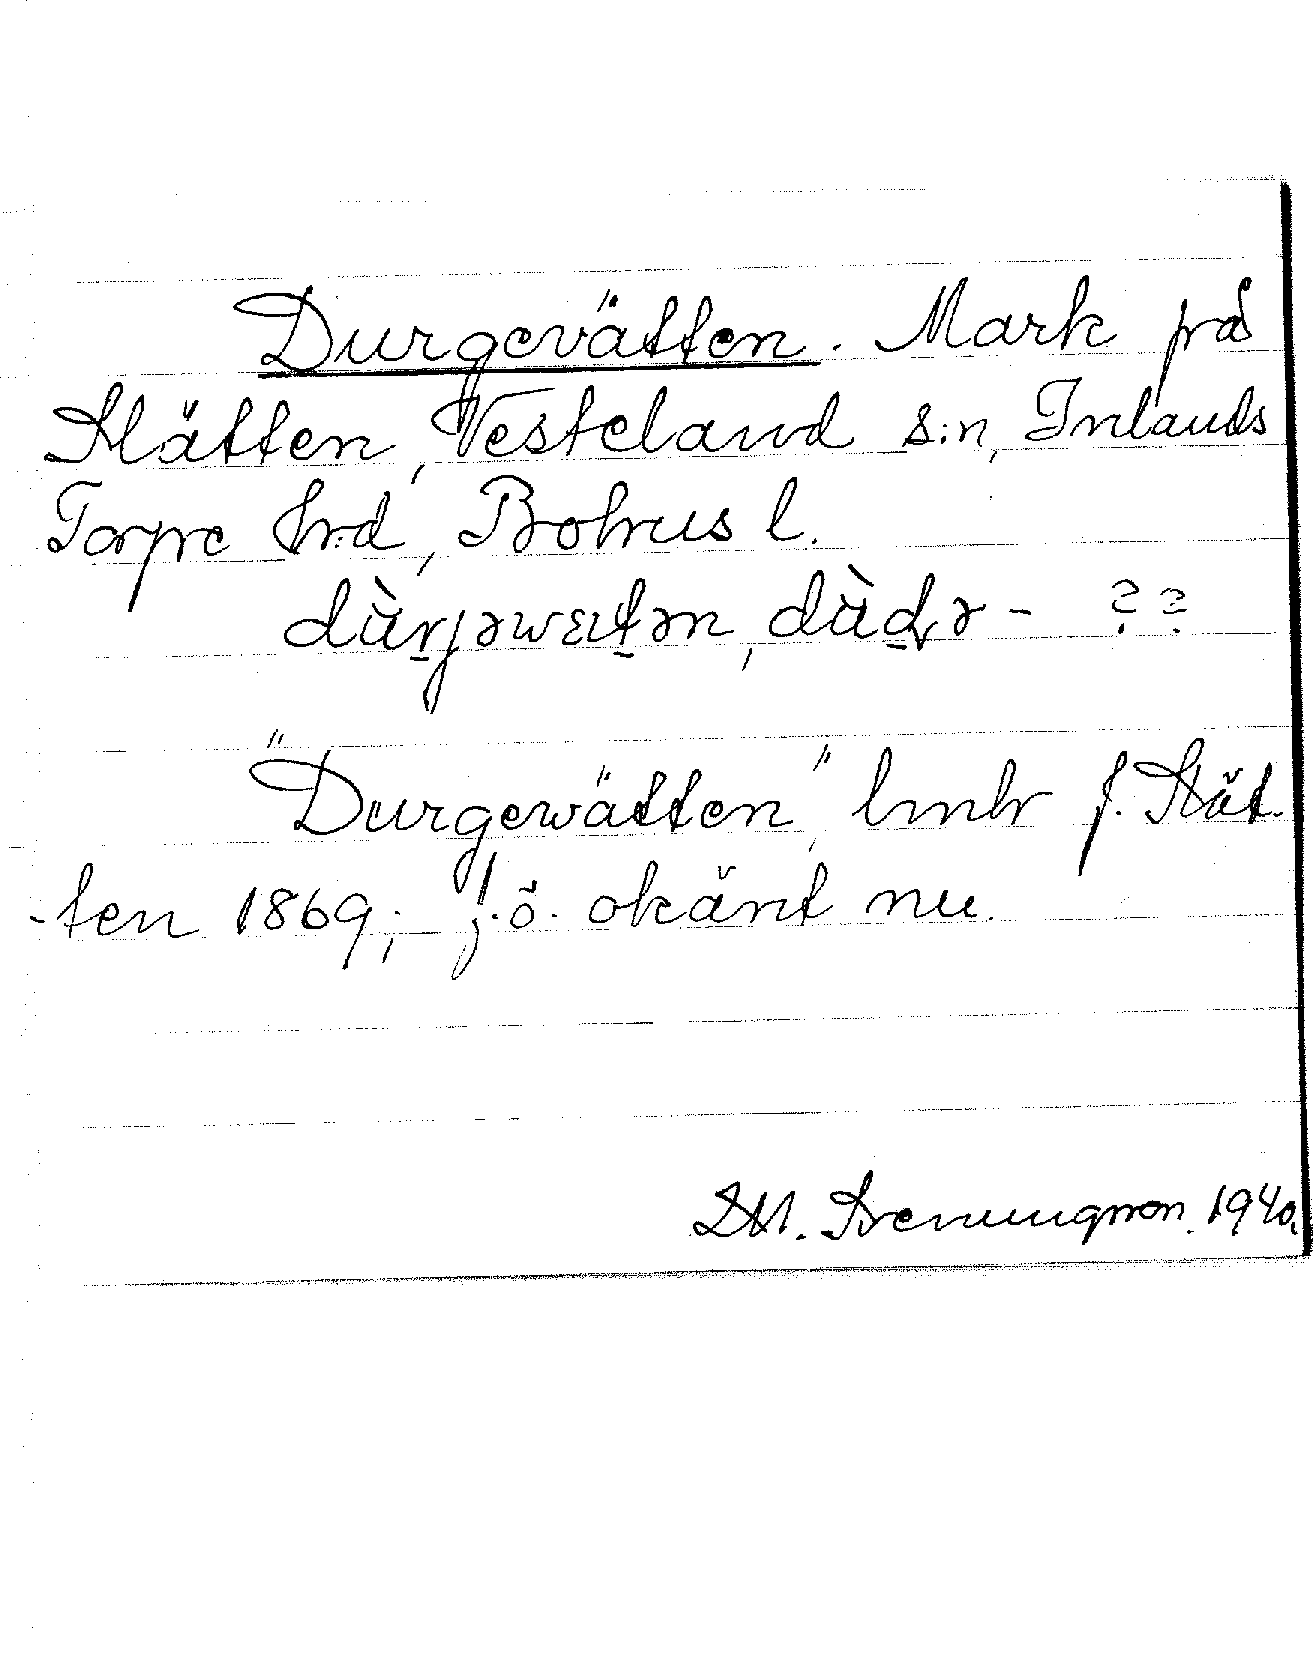 Durgevätten. Mark på
Klätten, Vesteland s:n, Inlands
Torpe hrd, Bohus l.
dùrjəwɛtən, dùdə - ??
"Durgewätten", lmh f. Klät-
-ten 1869; j. ö. okänt nu.
1940.